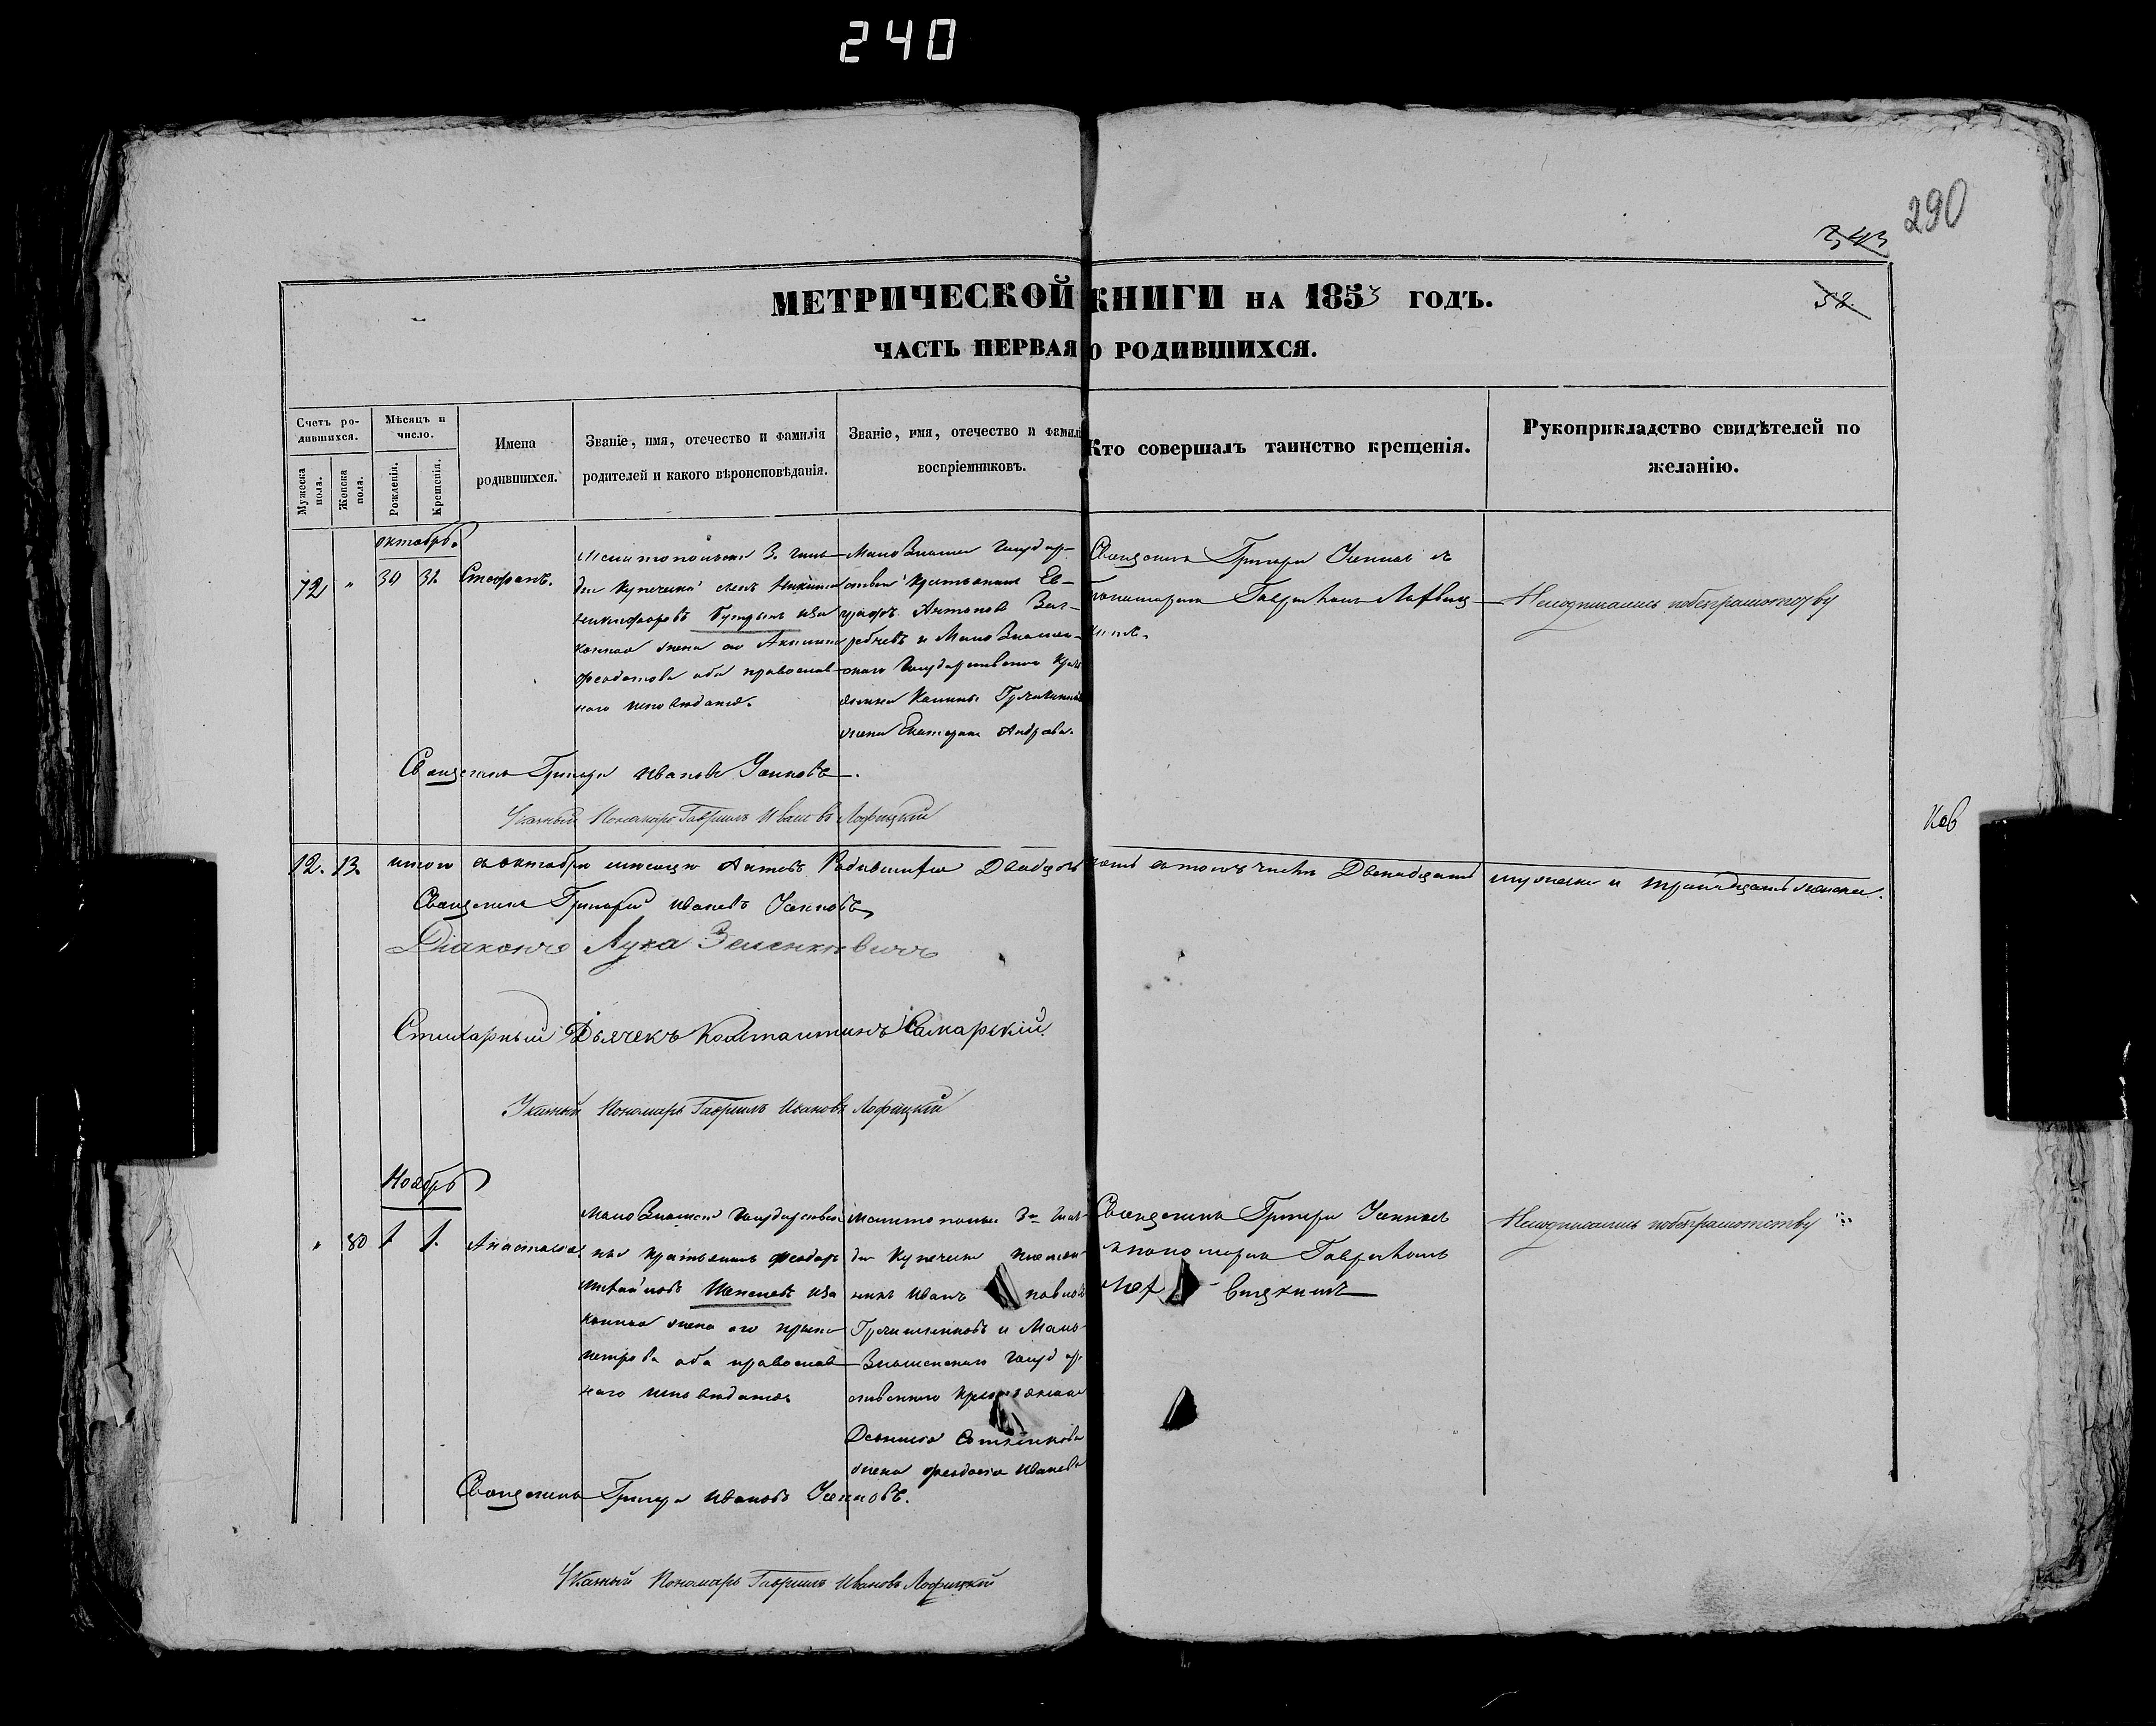 240
290
343
58.
МЕТРИЧЕСКОЙ КНИГИ НА 1853 ГОДЪ.
ЧАСТЬ ПЕРВАЯ О РОДИВШИХСЯ.
Счетъ ро-
дившихся.
Мужеска пола.
Женска пола.
Мѣсяцъ и
число.
Рожденія.
Крещенія.
Имена
родившихся.
Званіе, имя, отечество и фамилія
родителей и какого вѣроисповѣданія.
Званіе, имя, отечество и фамилі
воспріемниковъ.
Кто совершалъ таинство крещенія.
Рукоприкладство свидѣтелей по
желанію.
октябрь.
72 " 30 31 Стефанъ.
Мелитопольски 3. гиль-
діи купеческій сынъ Никита
Никифоровъ Бутринъ и за
конная жена его Акилина
Феодотова оба православ-
наго исповѣданія.
Мало Знаменс Государ-
ственный крестьянинъ Ев-
графъ Антоновъ
и Мало Знамен-
скаго Государственнаго крес
жена Екатерина Андреева.
Священникъ Григорій Усенковъ съ
пономаремъ Гавріиломъ
Неподписались по безграмотству
Священникъ Григорій Ивановъ Усенковъ.
Указный Пономарь Гавріилъ Ивановъ Лофицкій
12. 13. итого въ октябрѣ мѣсяцѣ Актовъ Родившихся Двадцать пять въ томъ числѣ Двенадцать мужеска и тринадцать женска.
Священникъ Григорій Ивановъ Усенковъ
Діаконъ Лука Зеленкевичъ
Стихарный Дьячекъ Константинъ Самарскій.
Указный Пономарь Гавріилъ Ивановъ Лофицкій
Кав
Ноябрь
" 80 1 1. Анастасія
Мало Знаменс Государствен
ный крестьянинъ Феодоръ
Михайловъ и за
конная жена его
Петрова оба православ-
наго исповѣданія
Мелитопольс 3й гиль-
діи купечески племян-
никъ Иванъ
и Мало-
Знаменскаго Государ
ственнаго крестьянина
Сотникова
жена Феодосія Иванова
Священникъ Григорій Усенковъ
съ пономаремъ Гавріиломъ
вицкимъ
Неподписались по безграмотству
Священникъ Григорій Ивановъ Усенковъ.
Указный Пономарь Гавріилъ Ивановъ Лофицкій